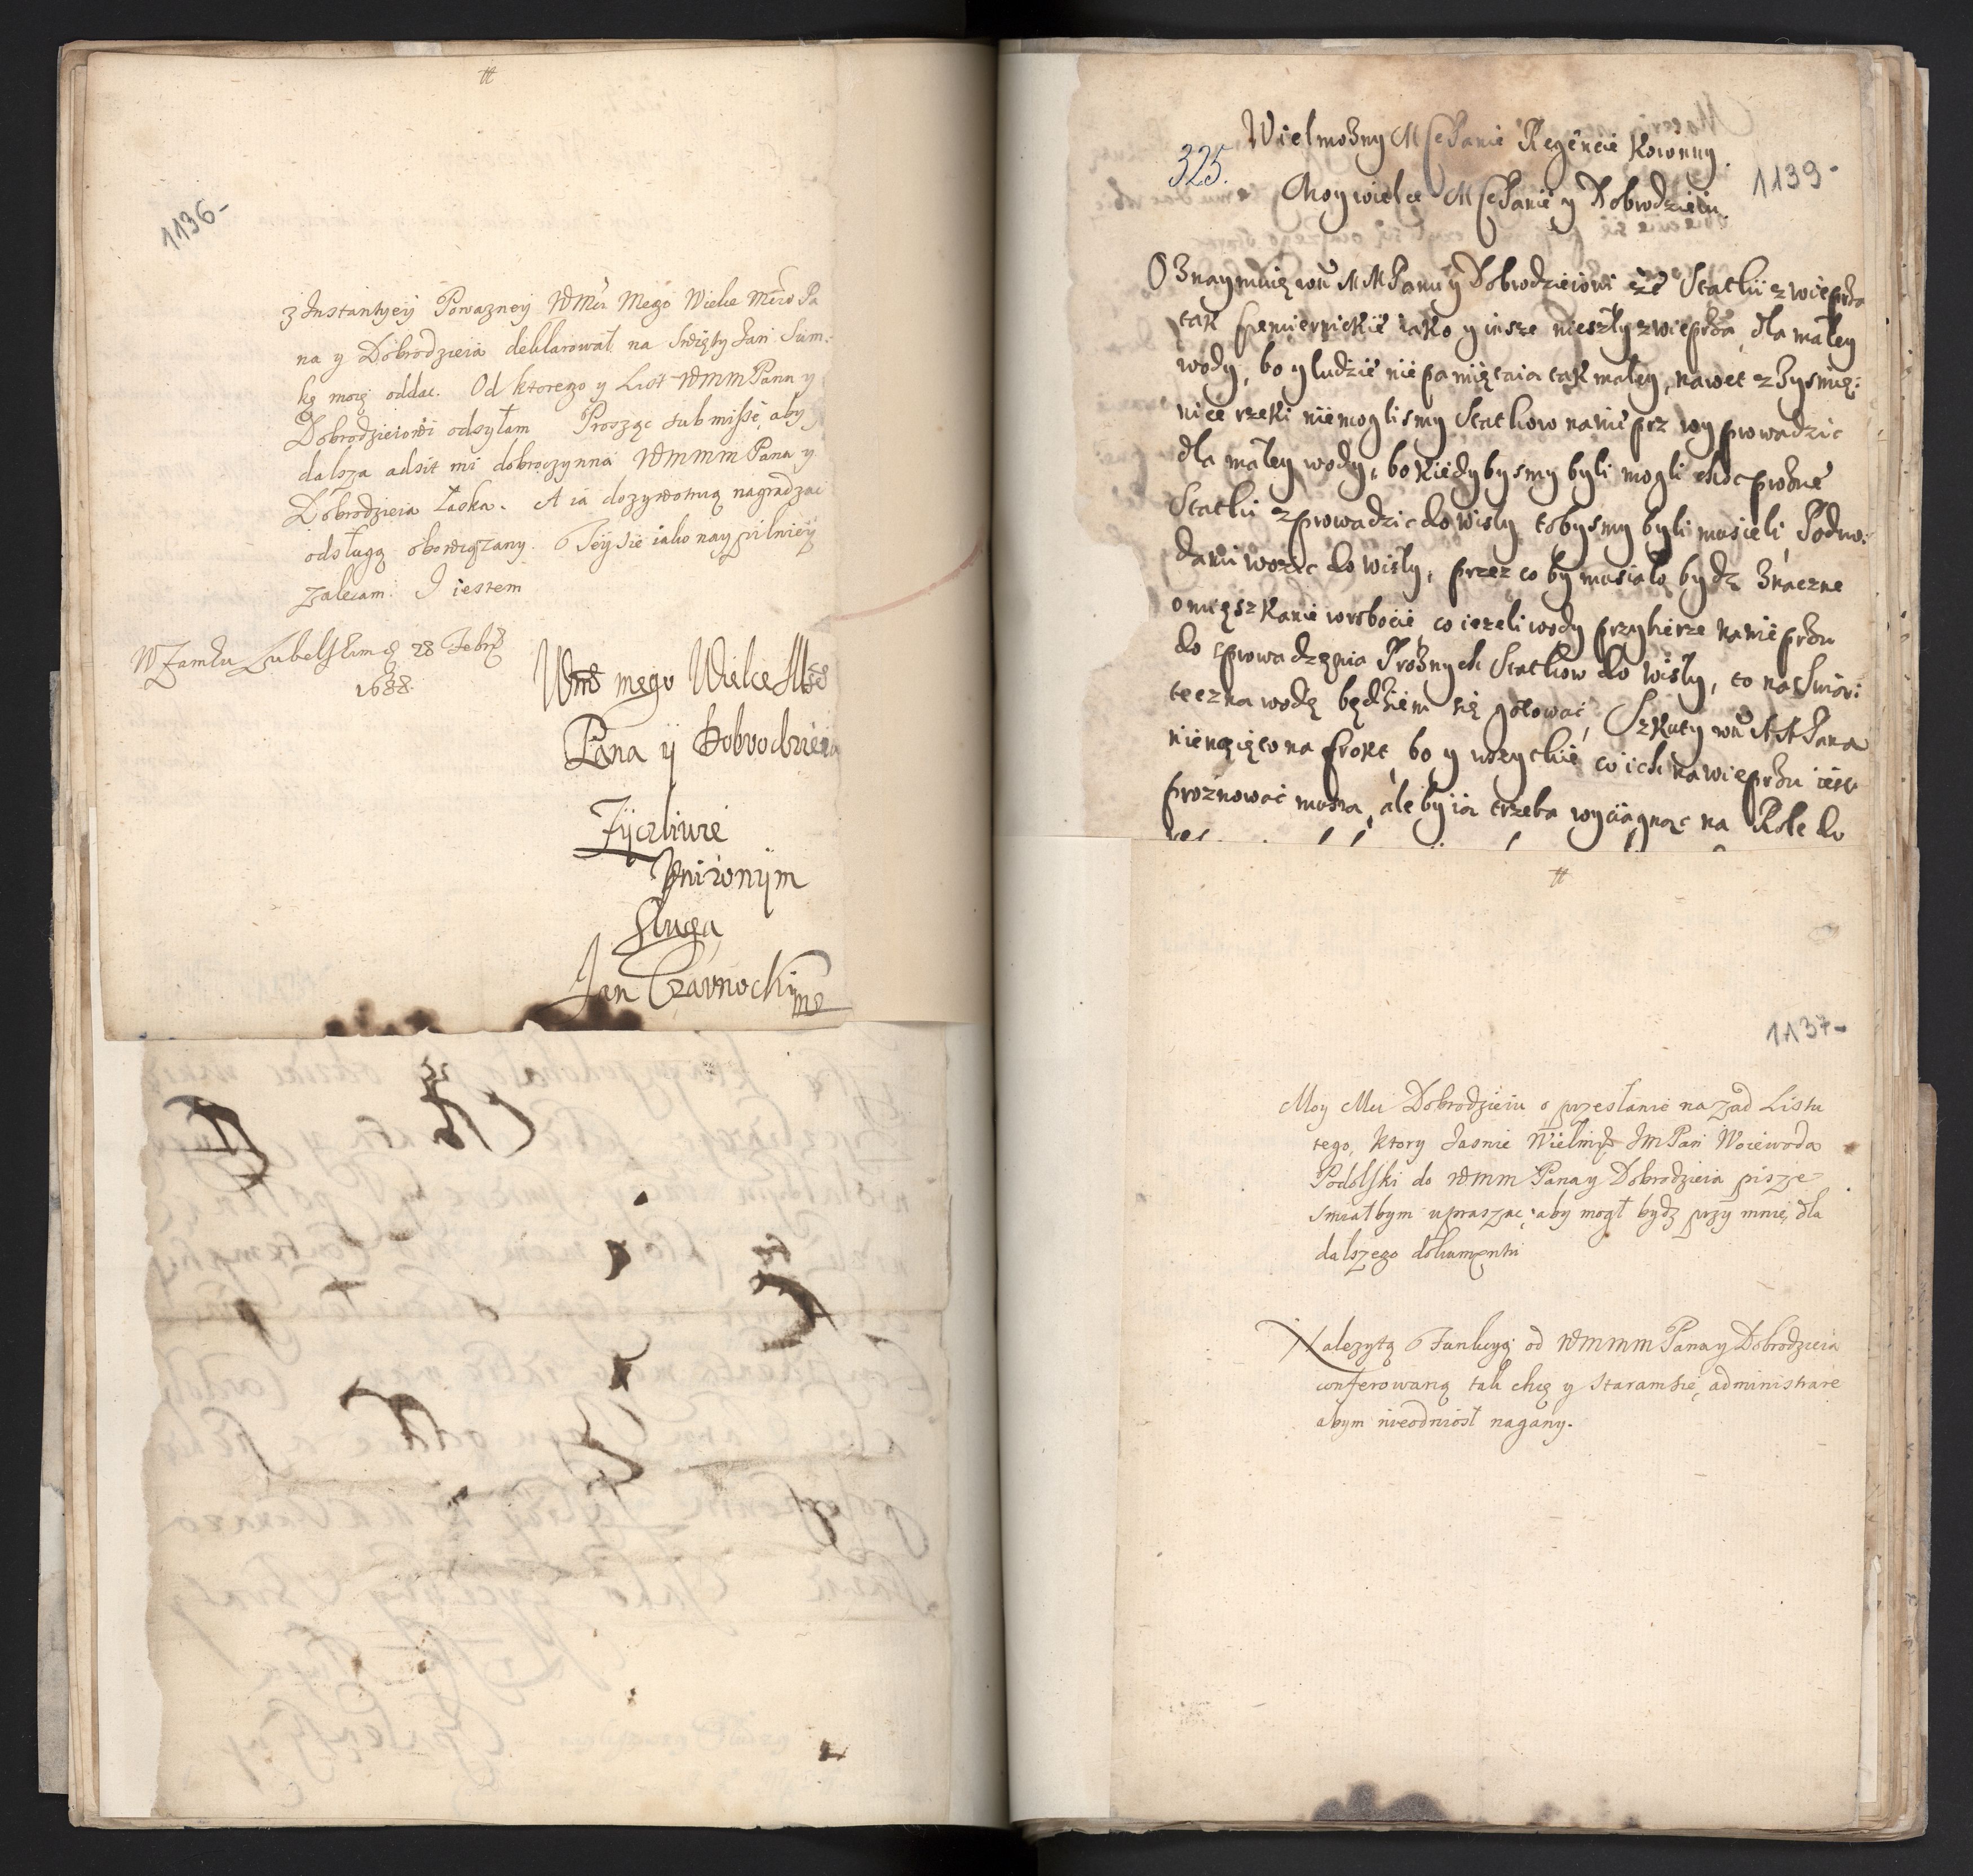 tt
1136-
z Instantyey Powazney WMci Mego Wielce Mciwo Pa
na y Dobrodzieia deklarował na Swięty Jan Sum-
kę moię oddac. Od ktorego y List WMM Panu y
Dobrodzieiowi odsyłam Prosząc submisse, aby
dalsza adsit mi dobroczynna WMMM Pana y
Dobrodzieia Łaska. A ia dozywotnią nagradzac
odsługą obowiązany. Teysie iako naypilniey
zalecam. I iestem
W Zamku Lubelskim 28 Febr
1688.
Wm mego Wielce Mso
Pana ÿ Dobrodzieia
Zÿczliwie
Unizonÿm
Sługą
Jan Czarnocki mp
325.
Wielmozny Msc Panie Regencie Koronny.
1139-
Moy wielce Msc Panie y Dobrodzieiu.
Oznaymuię wm MM Panu y Dobrodzieiowi że Statki z wieprza
tak siemiernickie iako y insze nieszły z wieprza, dla małey
wody, bo y ludzie nie pamiętaia tak małey, nawet z Bysmię:
nice rzeki niemoglismy Statkow na wieprz wyprowadzic
dla małey wody, bo kiedybysmy byli mogli choc prozne
Statki zprowadzic do wisły tobysmy byli musieli, Podwo:
dami wozic do wisły, przez co by musiało bydz znaczne
omięszkanie w robocie co iezeli wody przybierze na wieprzu
do sprowadzenia Proznych Statkow do wisły, to na Swiąt:
teczna wodę będziem się gotować, Szkuty wm MM Pana
nienaięto na frokt, bo y wszytkie co ich na wieprzu iest
proznować musza, ale by ia trzeba wyciągnąc na Role do
tt
1137-
Moy Mci Dobrodzieiu o przesłanie nazad Listu
tego, ktory Jasnie Wielmz JmPan Woiewoda
Podolski do WMM Pana y Dobrodzieia pisze
smiałbym upraszac, aby mogł bydz przy mnie, dla
dalszego dokumentu
Nalezytą Funkcyą od WMMM Pana y Dobrodzieia
conferowaną tak chcę y staram sie, administrare
abym nieodniosł nagany.